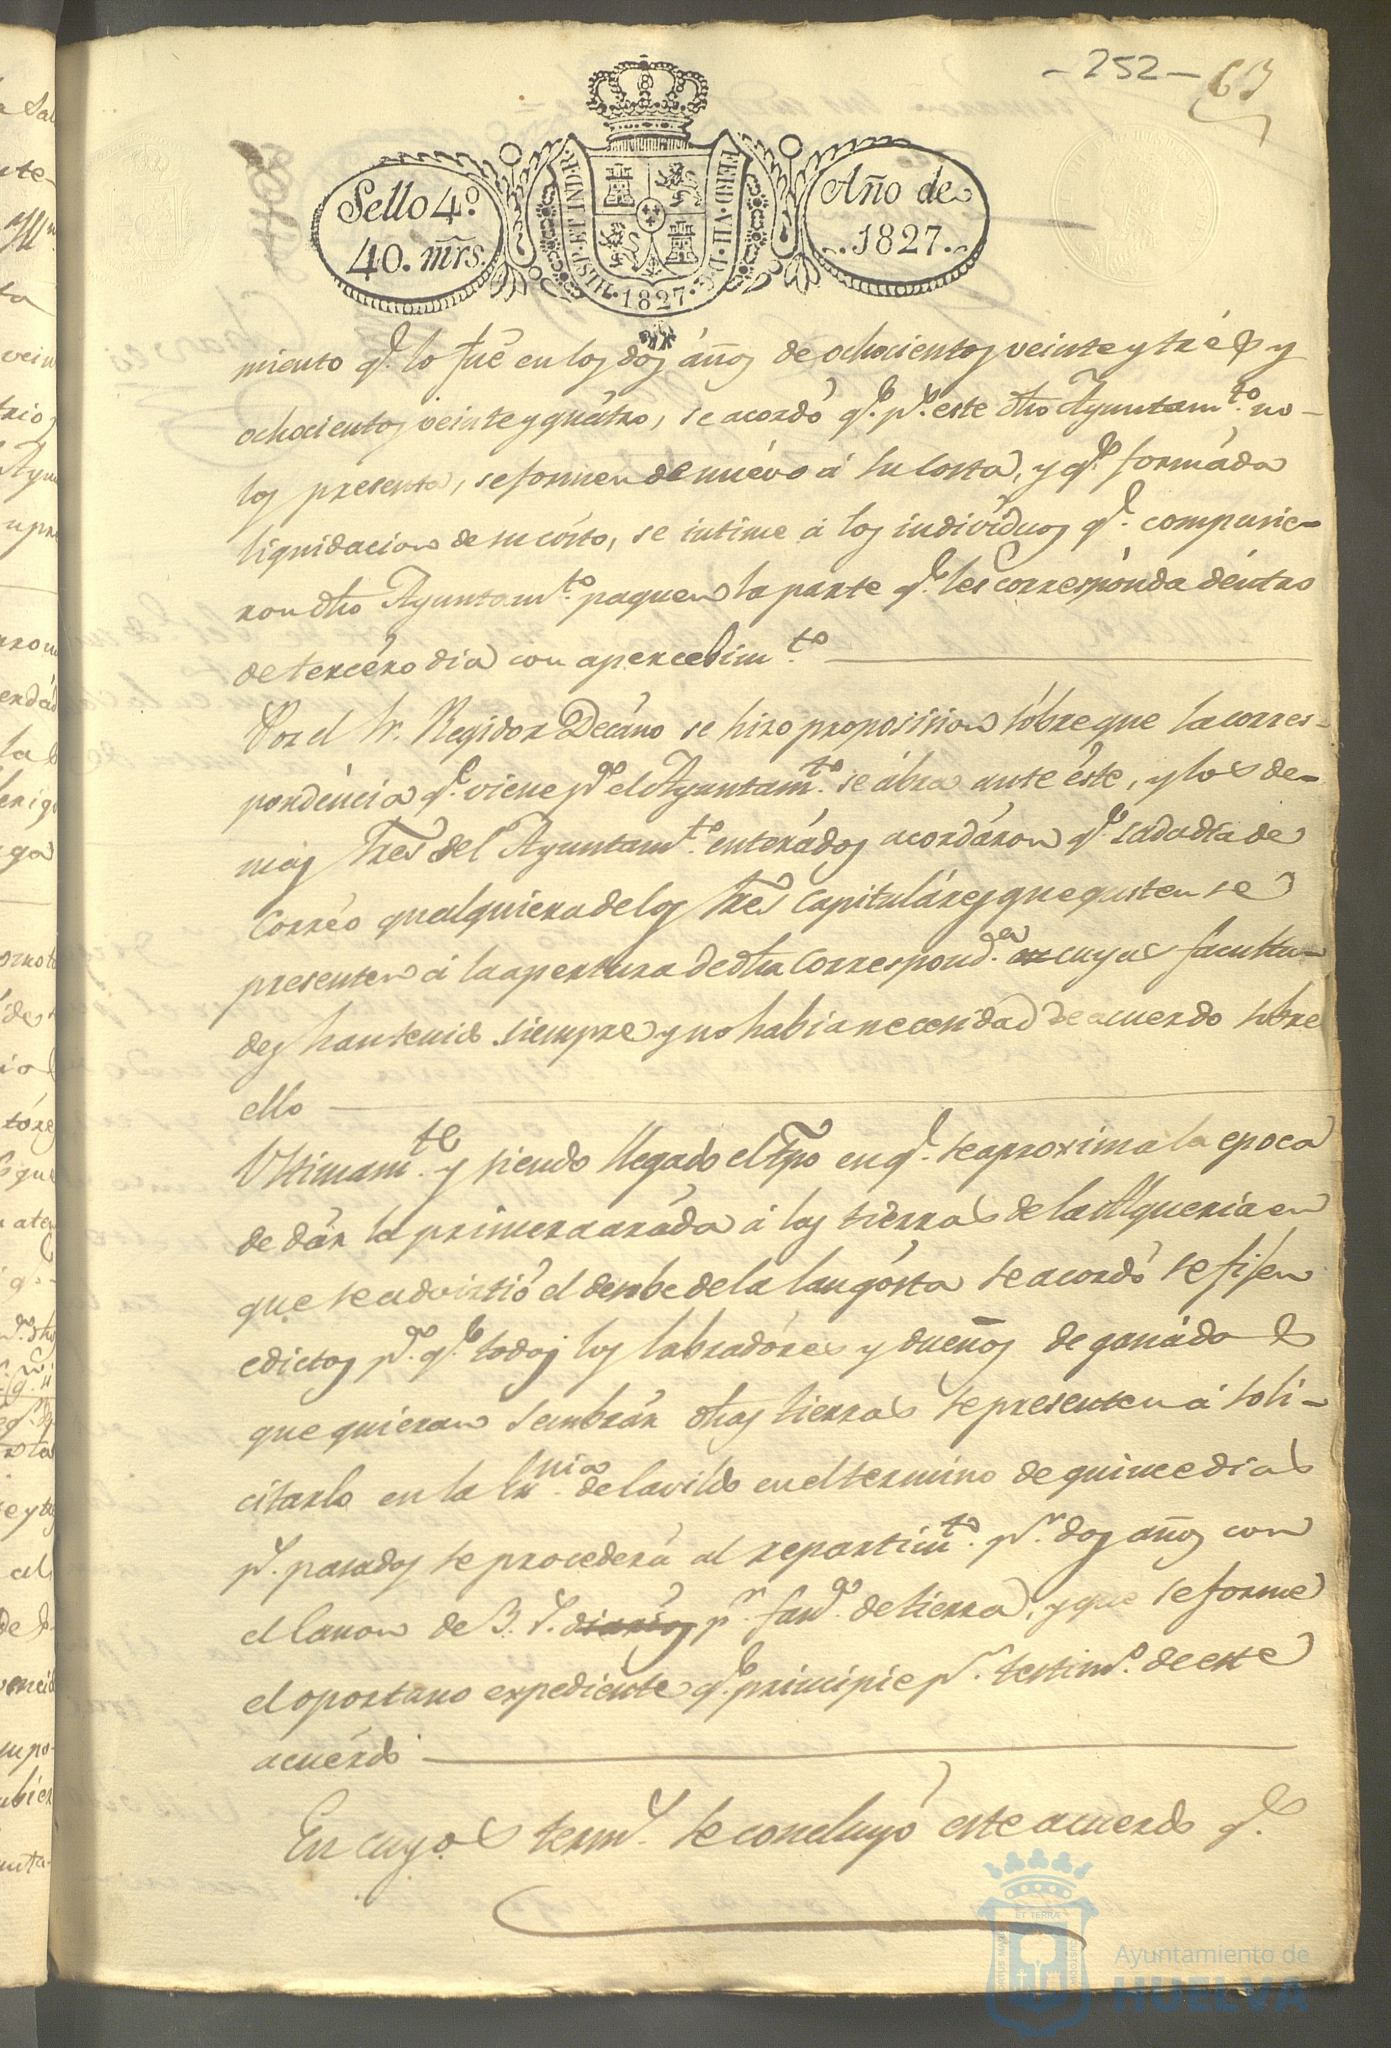 - 252 - 63
Sello 4.º
40. mrs.
HISP. ET IND. R. FERD. VII. D. G. 1827.
Año de
1827.
miento q.e lo fué en los dos años de ochocientos veinte y trés y
ochocientos veinte y quatro, se acordó q.e p.r este dho Ayuntam.to no
los presenta, se formen de nuévo á su costa, y q.e formáda
liquidacion de su costo, se intime á los individuos q.e compusie-
ron dho Ayuntam.to paguen la parte q.e les corresponda déntro
de tercéro dia con apercebim.to
Por el Sr. Regidor Decáno se hizo proposicion sóbre que la corres-
pondéncia q.e viene p.a el Ayuntam.to se ábra ante éste, y los de-
mas Sres del Ayuntam.to enterádos acordáron q.e cada dia de
Corréo qualquiera de los Sres Capituláres que gusten se
presenten á la apertura de dha correspond.a cuyas faculta-
des han tenido siempre y no habia necesidad de acuerdo sobre
ello
Ultimam.te y siendo llegado el tpo en q.e se aproxima la epoca
de dár la primera aráda á las tiérras de la Alqueria en
que se advirtió el desobe de la langósta se acordó se fijen
edictos p.a q.e todos los labradóres y dueños de ganádo
que quieran sembrár dhas tierras se presenten á soli-
citarlo en la Srnia de Cavildo en el término de quince dias
y pasados se procederá al repartim.to p.r dos años con
el Canon de 3. r. diarios p.r fan.a de tierra, y que se forme
el oportuno expediénte q.e principie p.r testim.o de este
acuérdo
En cuyos term.s se concluyó este acuerdo q.e
Ayuntamiento de
HUELVA